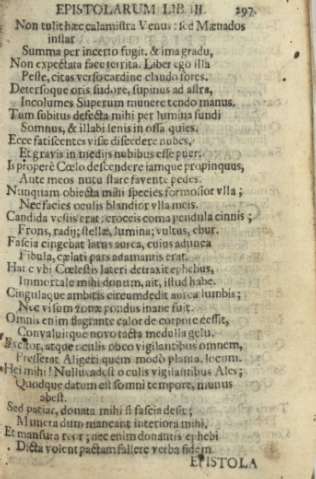 EPISTOLARUM LIB III. 297.
Non tulit hæc calamistra Venus: sed Mænados
instar
Summa per incerto fugit, & ima gradu,
Non expectata face territa. Liber ego illa
Peste, citas verso cardine claudo fores.
Detersoque oris sudore, supinus ad astra,
Incolumes Superum munere tendo manus.
Tum subitus defecta mihi per lumina fundi
Somnus, & illabi lenis in ossa quies.
Ecce fatiscentes visæ discedere nubes,
Et gravis in mediis nubibus esse puer.
Is properè Cœlo descendere iamque propinquus,
Ante meos nutu stare favente pedes.
Nunquam obiecta mihi species formosior vlla;
Nec facies oculis blandior vlla meis.
Candida vestis erat, croceis coma pendula cinnis;
Frons, radij; stellæ, lumina; vultus, ebur.
Fascia cingebat latus aurea, cuius adunca
Fibula, cælati pars adamantis erat.
Hac vbi Cœlestis lateri detraxit ephebus,
Immortale mihi donum, ait, istud habe.
Cingulaque ambitis circumdedit aurea lumbis;
Nec visum zonæ pondus inane fuit.
Omnis enim flagrante calor de corpore cessit,
Convaluitque novo tacta medulla gelu.
Excitor, atque oculis obeo vigilantibus omnem,
Presserat Aligeri quem modò planta, locum.
Hei mihi! Nullus adest oculis vigilantibus Ales;
Quodque datum est somni tempore, munus
abest.
Sed patiar, donata mihi si fascia desit;
Munera dum maneant interiora mihi.
Et mansura reor; nec enim donantis ephebi
Dicta volent pactam fallere verba fidem.
EPISTOLA